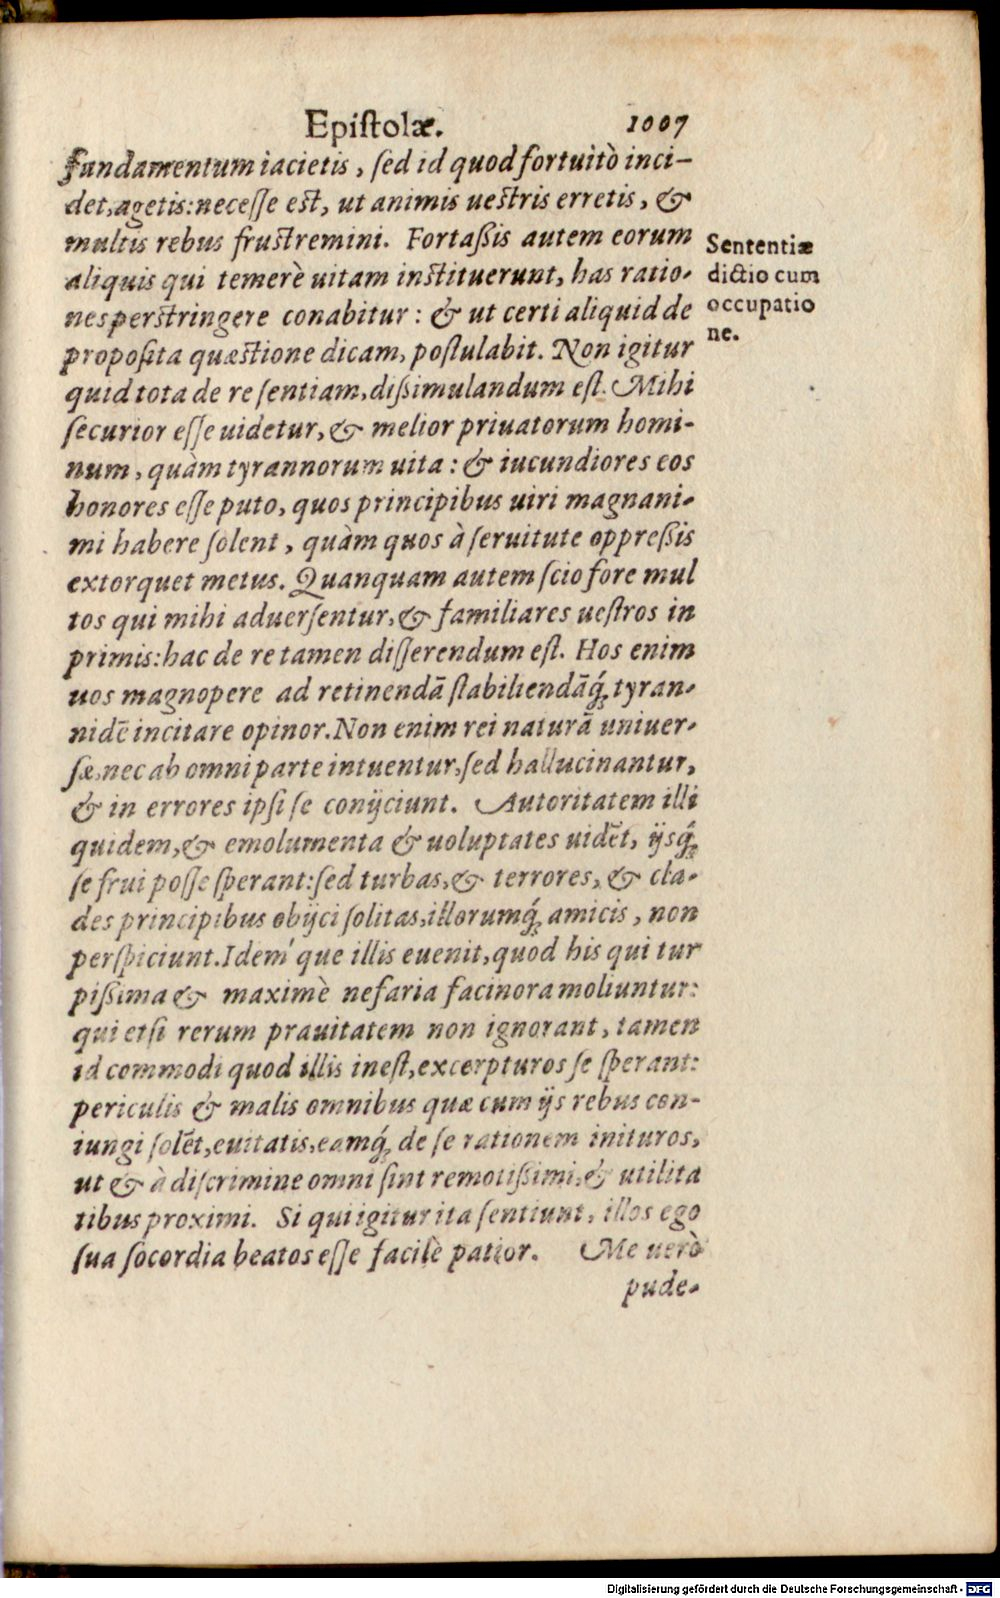 Epistolæ. 1007
fundamentum iacietis, sed id quod fortuitò inci-
det, agetis: necesse est, ut animis uestris erretis, &
multis rebus frustremini. Fortaßis autem eorum
aliquis qui temerè uitam instituerunt, has ratio-
nes perstringere conabitur: & ut certi aliquid de
proposita quæstione dicam, postulabit. Non igitur
quid tota de re sentiam, dißimulandum est. Mihi
securior esse uidetur, & melior priuatorum homi-
num, quàm tyrannorum uita: & iucundiores eos
honores esse puto, quos principibus uiri magnani-
mi habere solent, quàm quos à seruitute oppreßis
extorquet metus. Quanquam autem scio fore mul
tos qui mihi aduersentur, & familiares uestros in
primis: hac de re tamen disserendum est. Hos enim
uos magnopere ad retinendā stabiliendāq́; tyran-
nidē incitare opinor. Non enim rei naturā uniuer-
sæ, nec ab omni parte intuentur, sed hallucinantur,
& in errores ipsi se conijciunt. Autoritatem illi
quidem, & emolumenta & uoluptates uidēt, ijsq́;
se frui posse sperant: sed turbas, & terrores, & cla-
des principibus obijci solitas, illorumq́; amicis, non
perspiciunt. Idem' que illis euenit, quod his qui tur
pißima & maximè nefaria facinora moliuntur:
qui etsi rerum prauitatem non ignorant, tamen
id commodi quod illis inest, excerpturos se sperant:
periculis & malis omnibus quæ cum ijs rebus con-
iungi solēt, euitatis, eamq́; de se rationem inituros,
ut & à discrimine omni sint remotißimi, & utilita
tibus proximi. Si qui igitur ita sentiunt, illos ego
sua socordia beatos esse facilè patior. Me uerò
pude-
Sententiæ
dictio cum
occupatio
ne.
Digitalisierung gefördert durch die Deutsche Forschungsgemeinschaft - DFG